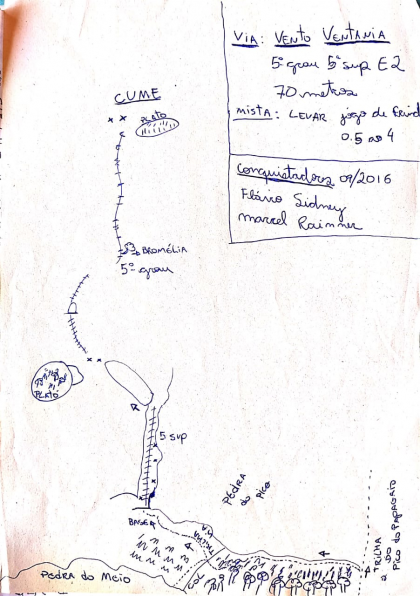 VIA: VENTO VENTANIA
5º grau 5º sup E2
70 metros
mista: LEVAR jogo de
0.5 ao 4
Conquistadores 09/2016
Flávio Sidney
marcel
CUME
PLATÔ
BROMÉLIA
5º grau
PLATÔ
5 sup
PEDRA
do PICO
BASE
TRILHA
Pedra do Meio
TRILHA
DO
PICO DO PAPAGAIO